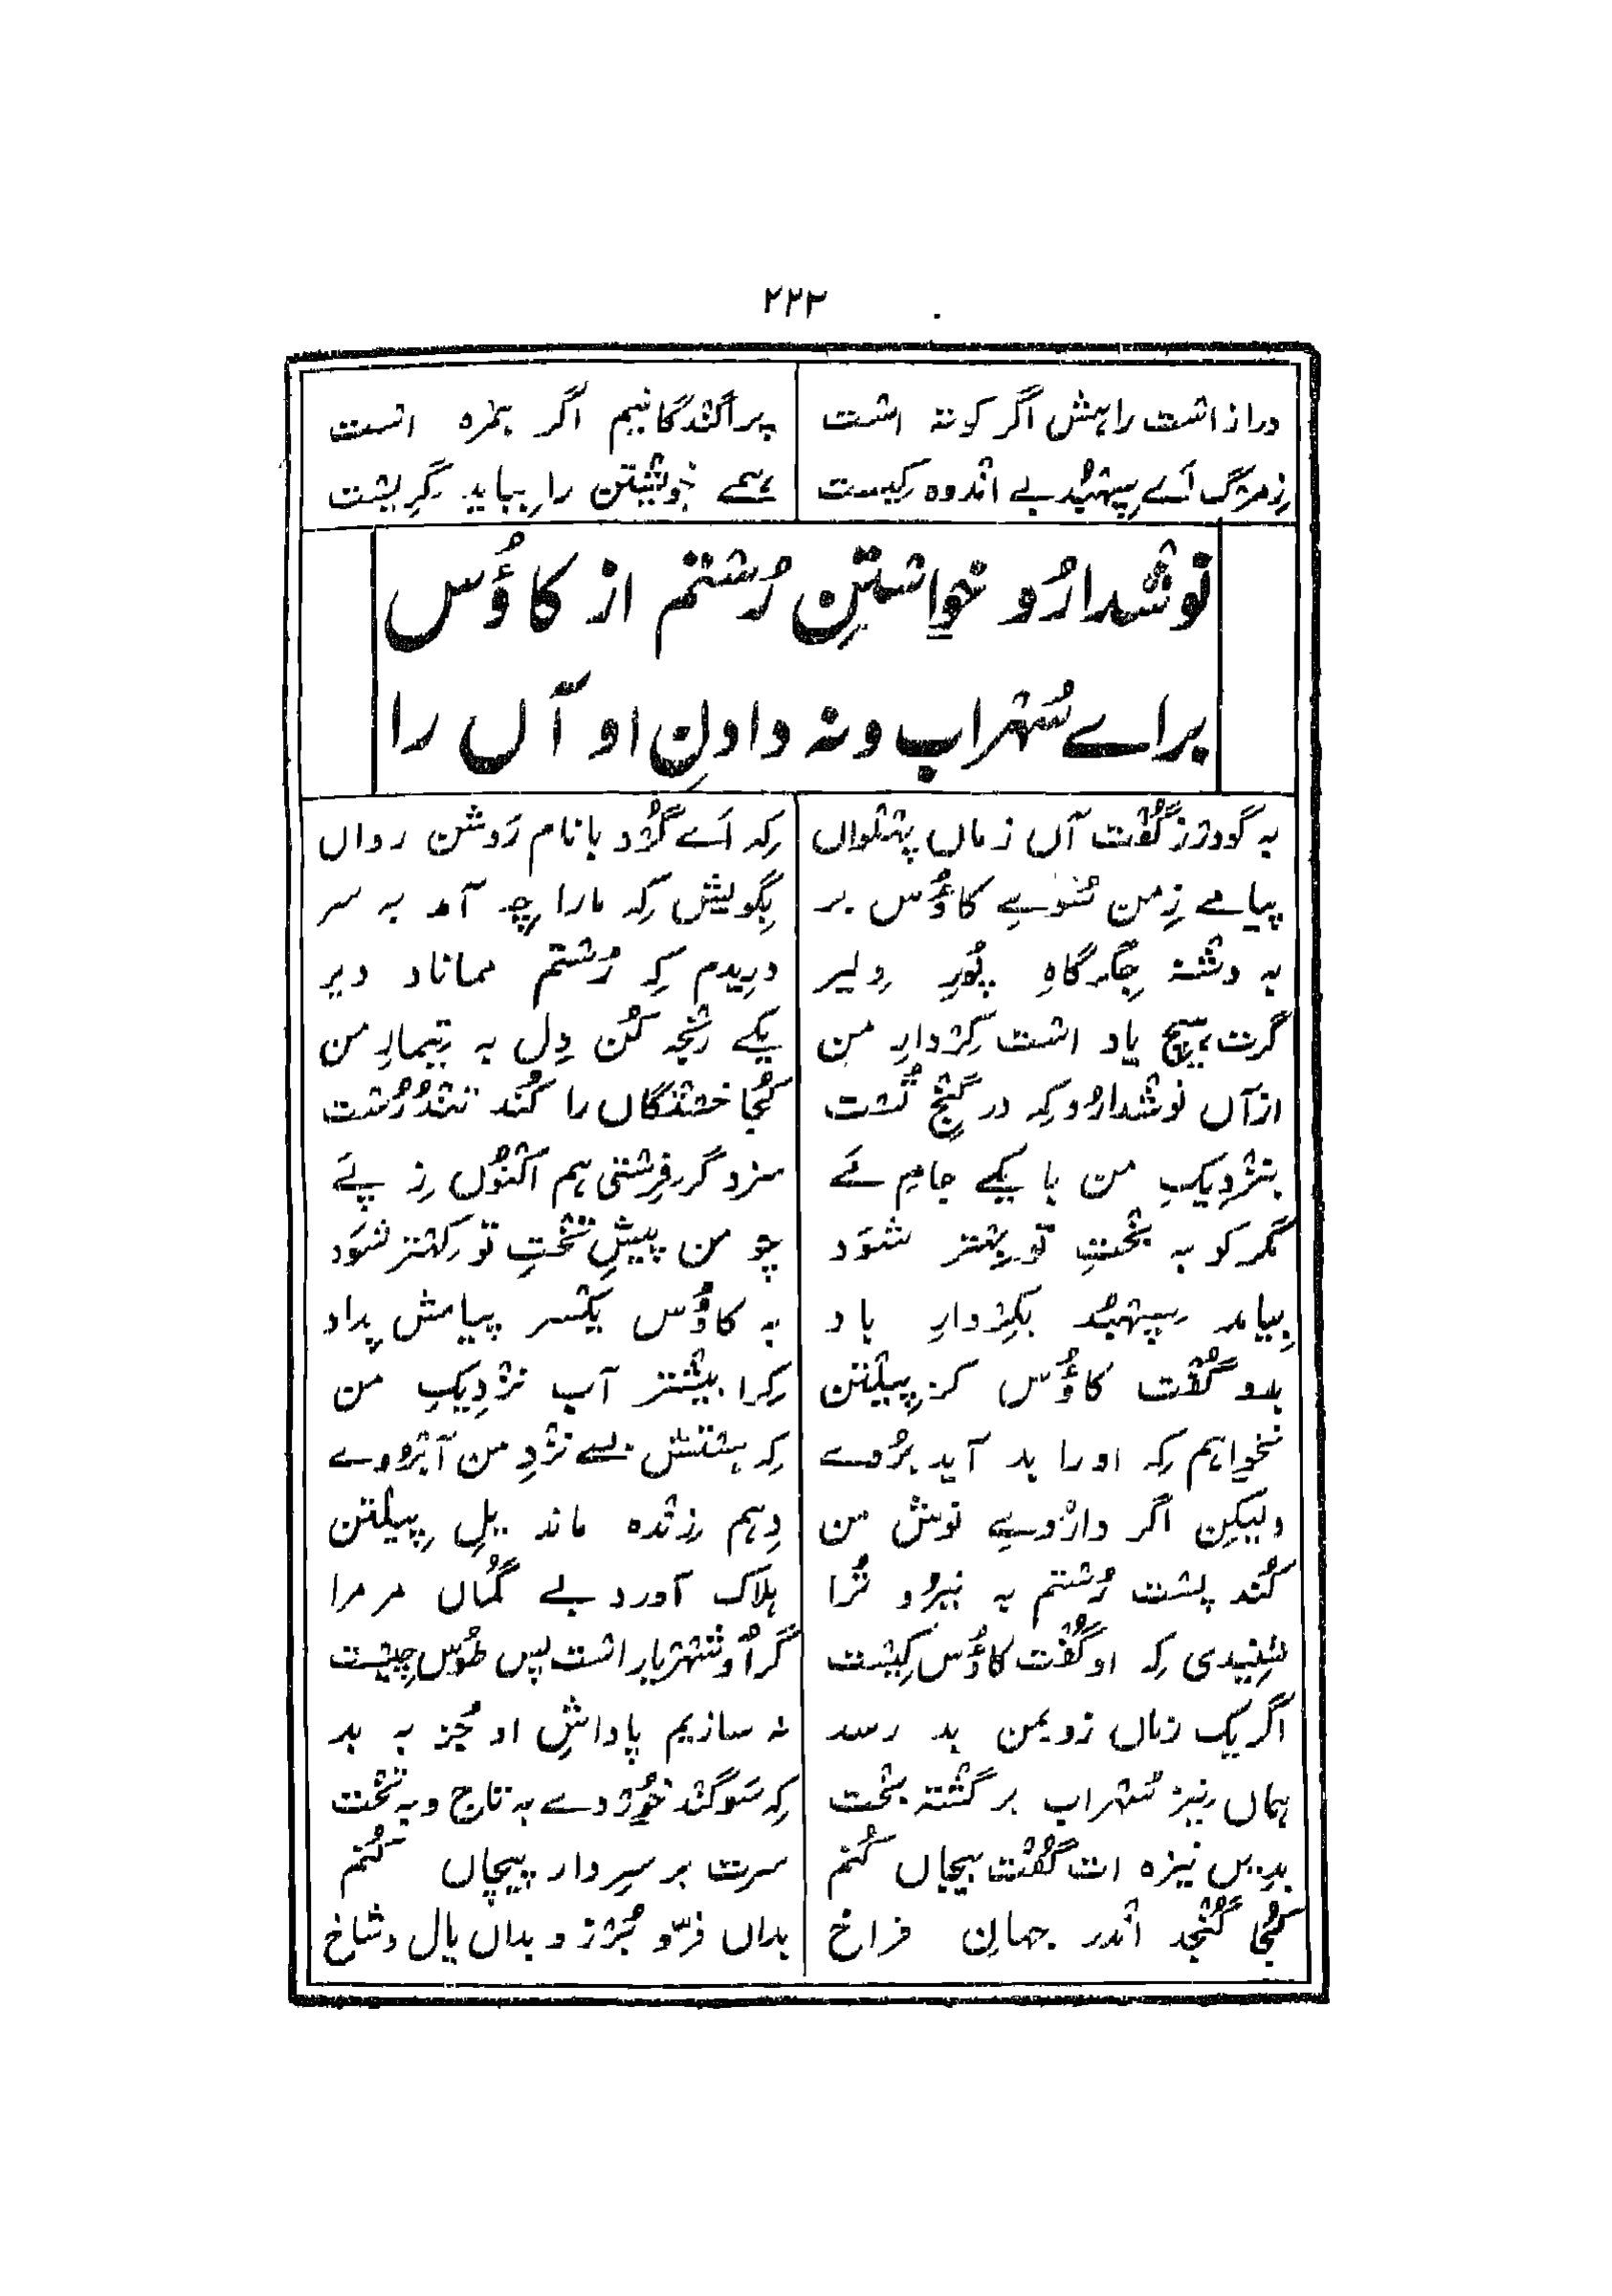 ۲۲۳
دراز است راہش اگر کوتہ است پراگندگانیم اگر ہمرہ است
زِ مرگ اَے سِپہبُد بے اندوہ کیست ہمے خویشتن را بباید گریست
نوشدارُو خواستنِ رُستم از کاؤُس
براے سُہراب و نہ دادنِ او آں را
بہ گودرز گُفت آں زماں پہلواں کِہ اَے گُرد با نام رَوشن رواں
پیامے زِ من سُوے کاؤُس بر بگویش کِہ مارا چِہ آمد بہ سر
بہ دشنہ جِگرگاہِ پُورِ دلیر دریدم کِہ رُستم مماناد دیر
گرت ہیچ یاد است کِردارِ من یکے رنجہ کُن دِل بہ تیمارِ من
ازآں نوشدارُو کِہ در گنجِ تُست کُجا خستگاں را کُند تندُرُست
بنزدیکِ من با یکے جامِ مَے سزد گر فِرستی ہم اکنُوں زِ پَے
مگر کو بہ بختِ تو بہتر شوَد چو من پیشِ تختِ تو کہتر شوَد
بِیامد سپہبُد بکِردارِ باد بہ کاؤُس یکسر پیامش بداد
بدو گُفت کاؤُس کز پِیلتن کِرا بیشتر آب نزدیکِ من
نخواہم کِہ او را بد آید برُوے کِہ ہستش بسے نزدِ من آبرُوے
ولیکِن اگر دارُوے نوش من دِہم زِندہ ماند یلِ پیلتن
کُند پشت رُستم بہ نیرُو تُرا ہلاک آورد بے گُماں مر مرا
شنِیدی کِہ او گُفت کاؤُس کیست گر اُو شہریار است پس طُوس چیست
اگر یک زماں زو بمن بد رسد نہ سازیم پاداشِ او جُز بہ بد
ہماں نیز سُہراب برگشتہ بخت کِہ سَوگند خُوردے بہ تاج و بہ تخت
بدِیں نیزہ ات گُفت بیجاں کُنم سرت بر سرِ دار پیچاں کُنم
کُجا گُنجد اندر جہانِ فراخ بداں فرّ و بُرز و بداں یال و شاخ